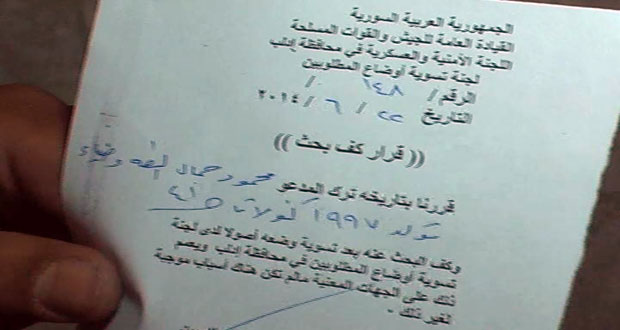 الجمهورية العربية السورية
القيادة العامة للجيش والقوات المسلحة
اللجنة الأمنية والعسكرية في محافظة إدلب
لجنة تسوية أوضاع المطلوبين
الرقم / ١٤٨ /
التاريخ ٢٢ / ٦ / ٢٠١٤
(( قرار كف بحث ))
قررنا بتاريخه ترك المدعو محمود جمال
تولد ١٩٩٧
وكف البحث عنه بعد تسوية وضعه أصولا لدى لجنة
تسوية أوضاع المطلوبين في محافظة إدلب ويعمم
ذلك على الجهات المعنية مالم تكن هناك أسباب موجبة
لغير ذلك -